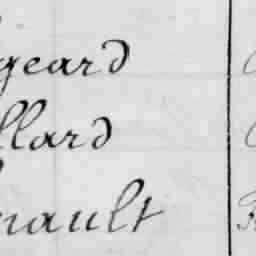 geard
llard
nault